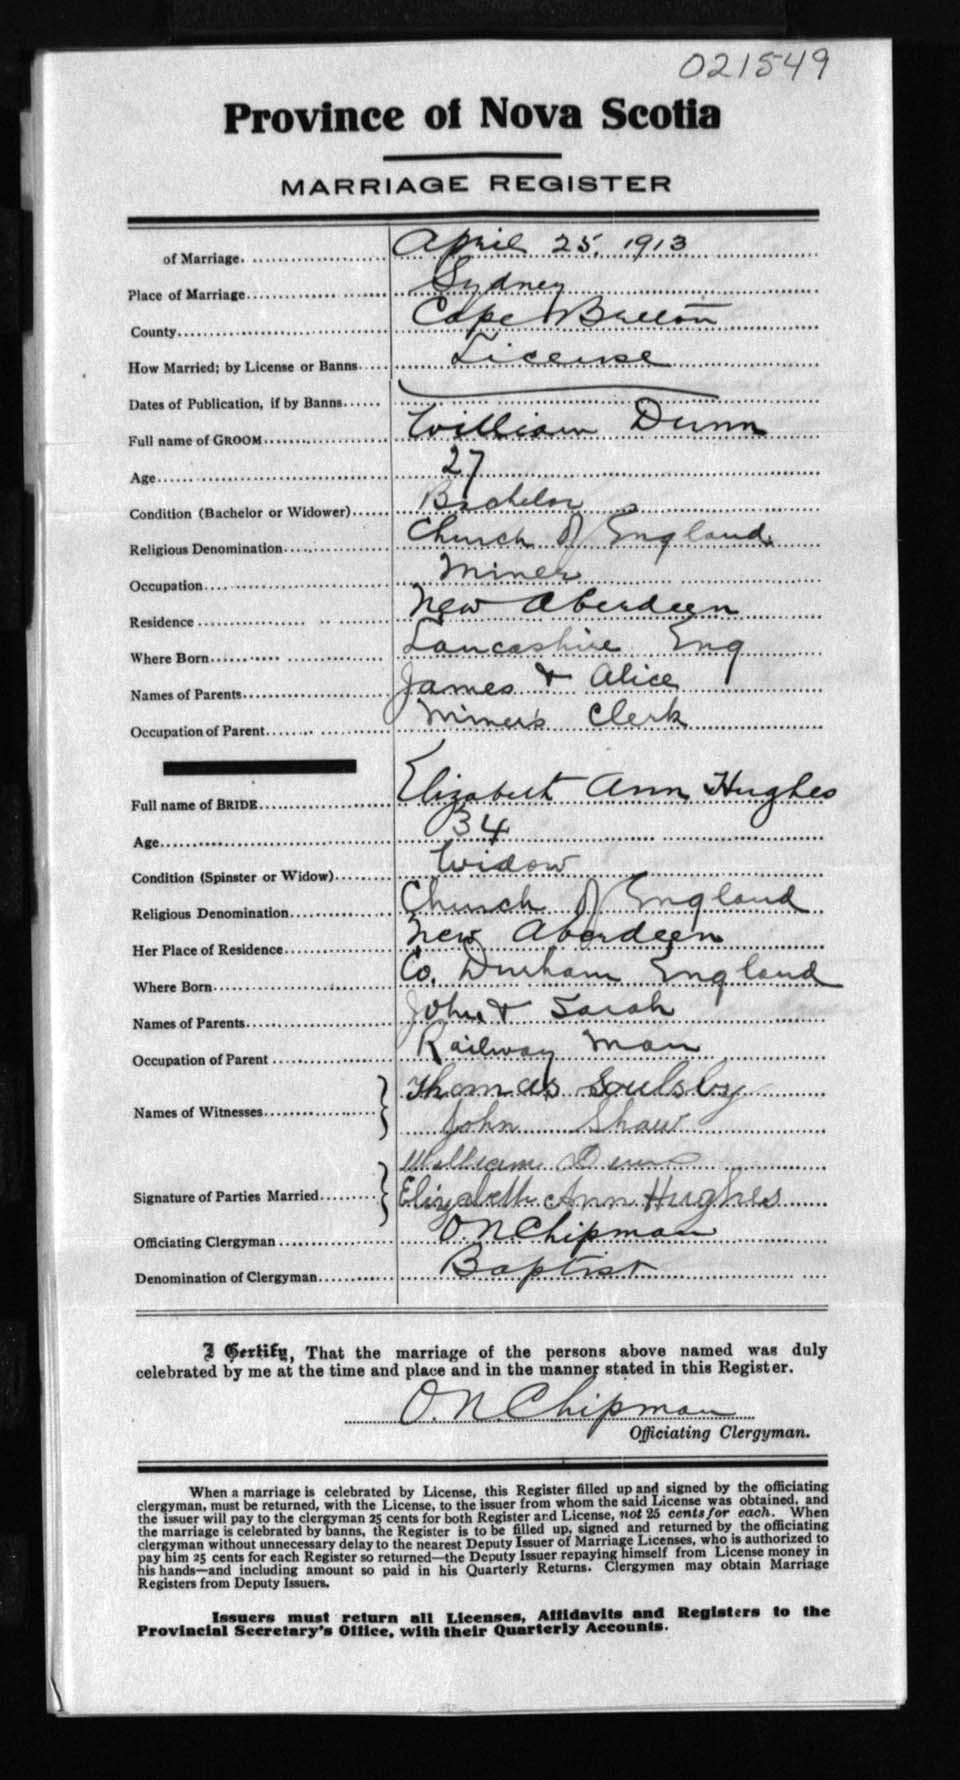 021549
Province of Nova Scotia
MARRIAGE REGISTER
of Marriage April 25, 1913
Place of Marriage Sydney
County Cape Breton
How Married; by License or Banns License
Dates of Publication, if by Banns
Full name of GROOM William Dunn
Age 27
Condition (Bachelor or Widower) Bachelor
Religious Denomination Church of England
Occupation Miner
Residence New Aberdeen
Where Born Lancashire Eng
Names of Parents James & Alice
Occupation of Parent Miner's Clerk
Full name of BRIDE Elizabeth Ann Hughes
Age 34
Condition (Spinster or Widow) Widow
Religious Denomination Church of England
Her Place of Residence New Aberdeen
Where Born Co. Durham England
Names of Parents John & Sarah
Occupation of Parent Railway Man
Names of Witnesses Thomas Soulsby
John Shaw
William Dunn
Signature of Parties Married Elizabeth Ann Hughes
Officiating Clergyman O N Chipman
Denomination of Clergyman Baptist
I Certify, That the marriage of the persons above named was duly
celebrated by me at the time and place and in the manner stated in this Register.
O. N. Chipman
Officiating Clergyman.
When a marriage is celebrated by License, this Register filled up and signed by the officiating
clergyman, must be returned, with the License, to the issuer from whom the said License was obtained, and
the issuer will pay to the clergyman 25 cents for both Register and License, not 25 cents for each. When
the marriage is celebrated by banns, the Register is to be filled up, signed and returned by the officiating
clergyman without unnecessary delay to the nearest Deputy Issuer of Marriage Licenses, who is authorized to
pay him 25 cents for each Register so returned—the Deputy Issuer repaying himself from License money in
his hands—and including amount so paid in his Quarterly Returns. Clergymen may obtain Marriage
Registers from Deputy Issuers.
Issuers must return all Licenses, Affidavits and Registers to the
Provincial Secretary's Office, with their Quarterly Accounts.